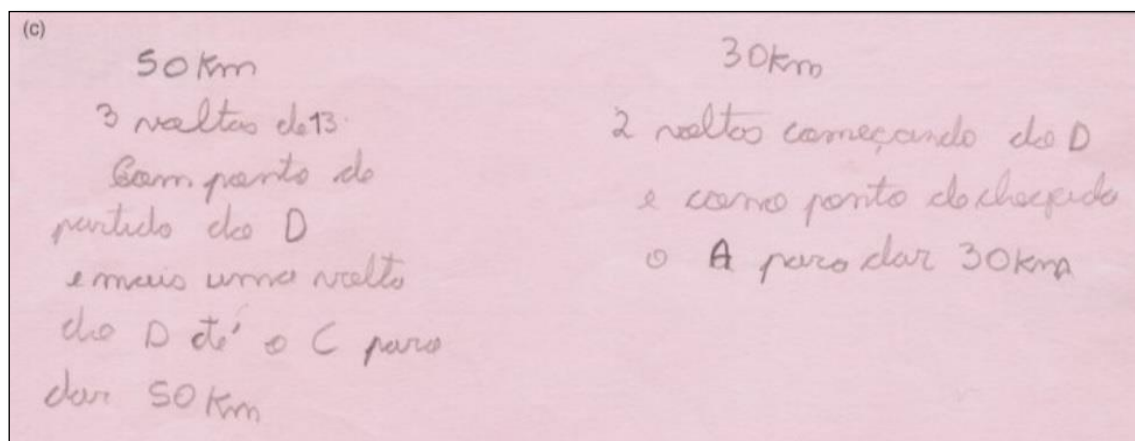 (c)
50 Km
3 voltas de 13.
Com ponto de
partida do D
e mais uma volta
do D até o C para
dar 50 Km
30km
2 voltas começando do D
e como ponto de chegada
o A para dar 30km